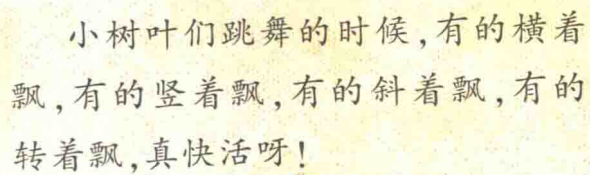 小树叶们跳舞的时候,有的横着
飘,有的竖着飘,有的斜着飘,有的
转着飘,真快活呀!